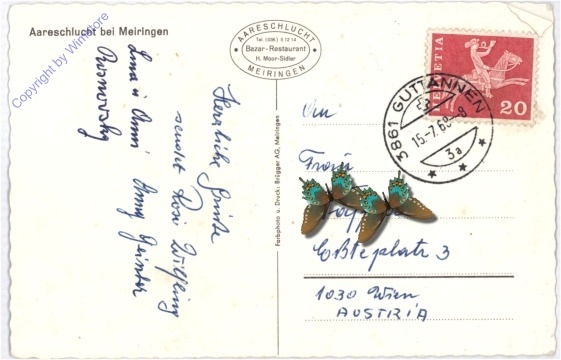 Aareschlucht bei Meiringen
Copyright by Winstore
AARESCHLUCHT
Tel. (036) 5 12 14
Bazar-Restaurant
H. Moor-Sidler
MEIRINGEN
HELVETIA
20
3861 GUTTANNEN
15.-7.68.-8
3a
Herzliche Grüsse
sendet Rosi
Anny
Farbphoto u. Druck: Brügger AG, Meiringen
An
Frau
3
1030 Wien
AUSTRIA